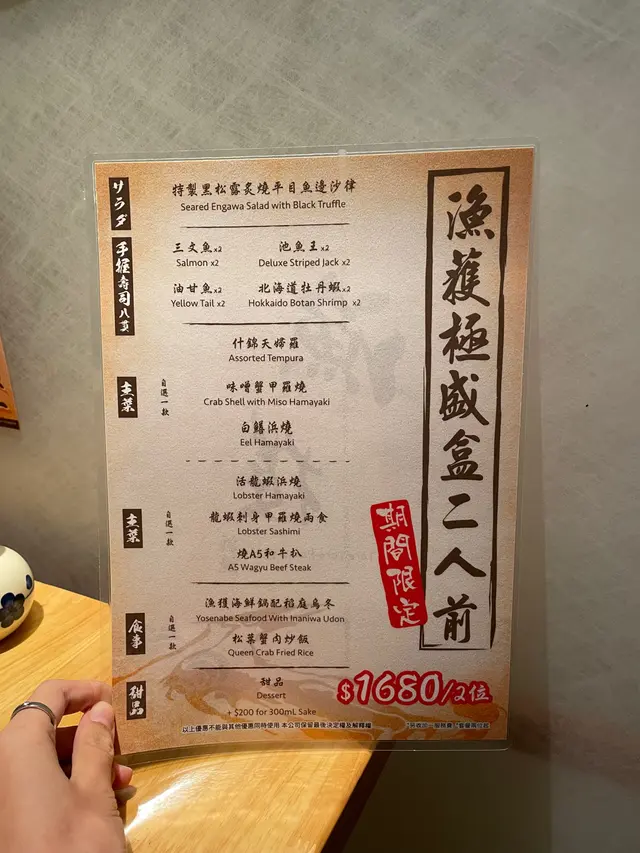 漁獲極盛盒二人前
期間限定
サラダ
特製黑松露炙燒平目魚邊沙律
Seared Engawa Salad with Black Truffle
手握壽司八貫
三文魚x2
Salmon x2
池魚王x2
Deluxe Striped Jack x2
油甘魚x2
Yellow Tail x2
北海道牡丹蝦x2
Hokkaido Botan Shrimp x2
主菜
自選一款
什錦天婦羅
Assorted Tempura
味噌蟹甲羅燒
Crab Shell with Miso Hamayaki
白鱔浜燒
Eel Hamayaki
主菜
自選一款
活龍蝦浜燒
Lobster Hamayaki
龍蝦刺身甲羅燒兩食
Lobster Sashimi
燒A5和牛扒
A5 Wagyu Beef Steak
食事
自選一款
漁獲海鮮鍋配稻庭烏冬
Yosenabe Seafood With Inaniwa Udon
松葉蟹肉炒飯
Queen Crab Fried Rice
甜品
甜品
Dessert
+ $200 for 300mL Sake
$1680/2位
以上優惠不能與其他優惠同時使用 本公司保留最後決定權及解釋權